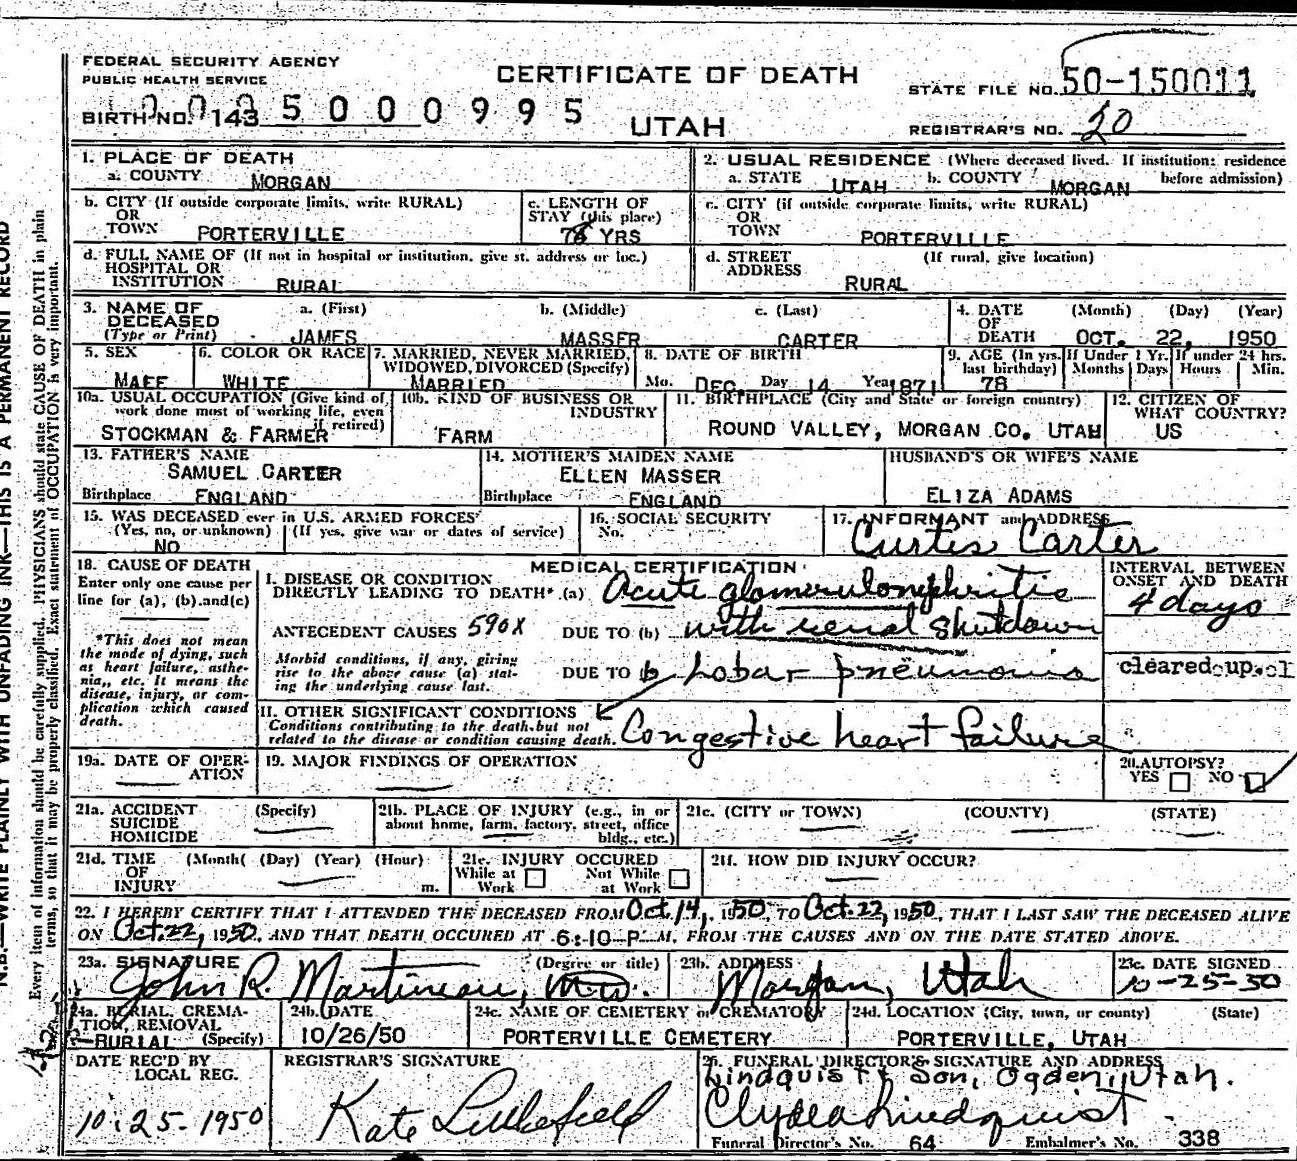 FEDERAL SECURITY AGENCY
PUBLIC HEALTH SERVICE
CERTIFICATE OF DEATH
STATE FILE NO. 50-150011
BIRTH NO. 143 5 0 0 0 9 9 5
UTAH
REGISTRAR'S NO. 20
1. PLACE OF DEATH
a. COUNTY MORGAN
2. USUAL RESIDENCE (Where deceased lived. If institution: residence before admission)
a. STATE UTAH b. COUNTY MORGAN
b. CITY (If outside corporate limits, write RURAL)
OR
TOWN PORTERVILLE
c. LENGTH OF
STAY (this place)
78 YRS
c. CITY (if outside corporate limits, write RURAL)
OR
TOWN PORTERVILLE
d. FULL NAME OF (If not in hospital or institution, give st. address or loc.)
HOSPITAL OR
INSTITUTION RURAL
d. STREET (If rural, give location)
ADDRESS RURAL
3. NAME OF DECEASED
(Type or Print)
a. (First) b. (Middle) c. (Last)
JAMES MASSER CARTER
4. DATE OF DEATH (Month) (Day) (Year)
OCT. 22, 1950
5. SEX
MALE
6. COLOR OR RACE
WHITE
7. MARRIED, NEVER MARRIED,
WIDOWED, DIVORCED (Specify)
MARRIED
8. DATE OF BIRTH
Mo. DEC Day 14 Year 1871
9. AGE (In yrs. last birthday)
78
If Under 1 Yr. Months Days
If under 24 hrs. Hours Min.
10a. USUAL OCCUPATION (Give kind of
work done most of working life, even
if retired)
STOCKMAN & FARMER
10b. KIND OF BUSINESS OR
INDUSTRY
FARM
11. BIRTHPLACE (City and State or foreign country)
ROUND VALLEY, MORGAN CO. UTAH
12. CITIZEN OF
WHAT COUNTRY?
US
13. FATHER'S NAME
SAMUEL CARTER
Birthplace ENGLAND
14. MOTHER'S MAIDEN NAME
ELLEN MASSER
Birthplace ENGLAND
HUSBAND'S OR WIFE'S NAME
ELIZA ADAMS
15. WAS DECEASED ever in U.S. ARMED FORCES
(Yes, no, or unknown) (If yes, give war or dates of service)
NO
16. SOCIAL SECURITY
No.
17. INFORMANT and ADDRESS
Curtis Carter
18. CAUSE OF DEATH
Enter only one cause per
line for (a), (b) and (c)
*This does not mean
the mode of dying, such
as heart failure, asthe-
nia, etc. It means the
disease, injury, or com-
plication which caused
death.
MEDICAL CERTIFICATION
INTERVAL BETWEEN
ONSET AND DEATH
I. DISEASE OR CONDITION
DIRECTLY LEADING TO DEATH* (a) Acute glomerulonephritis
4 days
ANTECEDENT CAUSES 590X DUE TO (b) with renal shutdown
Morbid conditions, if any, giving
rise to the above cause (a) stat-
ing the underlying cause last.
DUE TO b Lobar pneumonia
cleared up
II. OTHER SIGNIFICANT CONDITIONS
Conditions contributing to the death but not
related to the disease or condition causing death.
Congestive heart failure
19a. DATE OF OPER-
ATION
19. MAJOR FINDINGS OF OPERATION
20. AUTOPSY?
YES NO
21a. ACCIDENT (Specify)
SUICIDE
HOMICIDE
21b. PLACE OF INJURY (e.g., in or
about home, farm, factory, street, office
bldg., etc.)
21c. (CITY or TOWN) (COUNTY) (STATE)
21d. TIME (Month( (Day) (Year) (Hour)
OF
INJURY m.
21e. INJURY OCCURED
While at Work Not While at Work
21f. HOW DID INJURY OCCUR?
22. I HEREBY CERTIFY THAT I ATTENDED THE DECEASED FROM Oct. 14, 1950, TO Oct. 22, 1950, THAT I LAST SAW THE DECEASED ALIVE
ON Oct. 22, 1950, AND THAT DEATH OCCURED AT 6:10 P M, FROM THE CAUSES AND ON THE DATE STATED ABOVE.
23a. SIGNATURE (Degree or title)
John R. Martineau, M.D.
23b. ADDRESS
Morgan, Utah
23c. DATE SIGNED
10-25-50
24a. BURIAL, CREMA-
TION, REMOVAL
BURIAL (Specify)
24b. DATE
10/26/50
24c. NAME OF CEMETERY or CREMATORY
PORTERVILLE CEMETERY
24d. LOCATION (City, town, or county) (State)
PORTERVILLE, UTAH
DATE REC'D BY
LOCAL REG.
10-25-1950
REGISTRAR'S SIGNATURE
Kate Littlefield
25. FUNERAL DIRECTOR'S SIGNATURE AND ADDRESS
Lindquist & Son, Ogden, Utah.
Clyde Lindquist
Funeral Director's No. 64 Embalmer's No. 338
N.B.—WRITE PLAINLY WITH UNFADING INK—THIS IS A PERMANENT RECORD
Every item of information should be carefully supplied. PHYSICIANS should state CAUSE OF DEATH in plain
terms, so that it may be properly classified. Exact statement of OCCUPATION is very important.